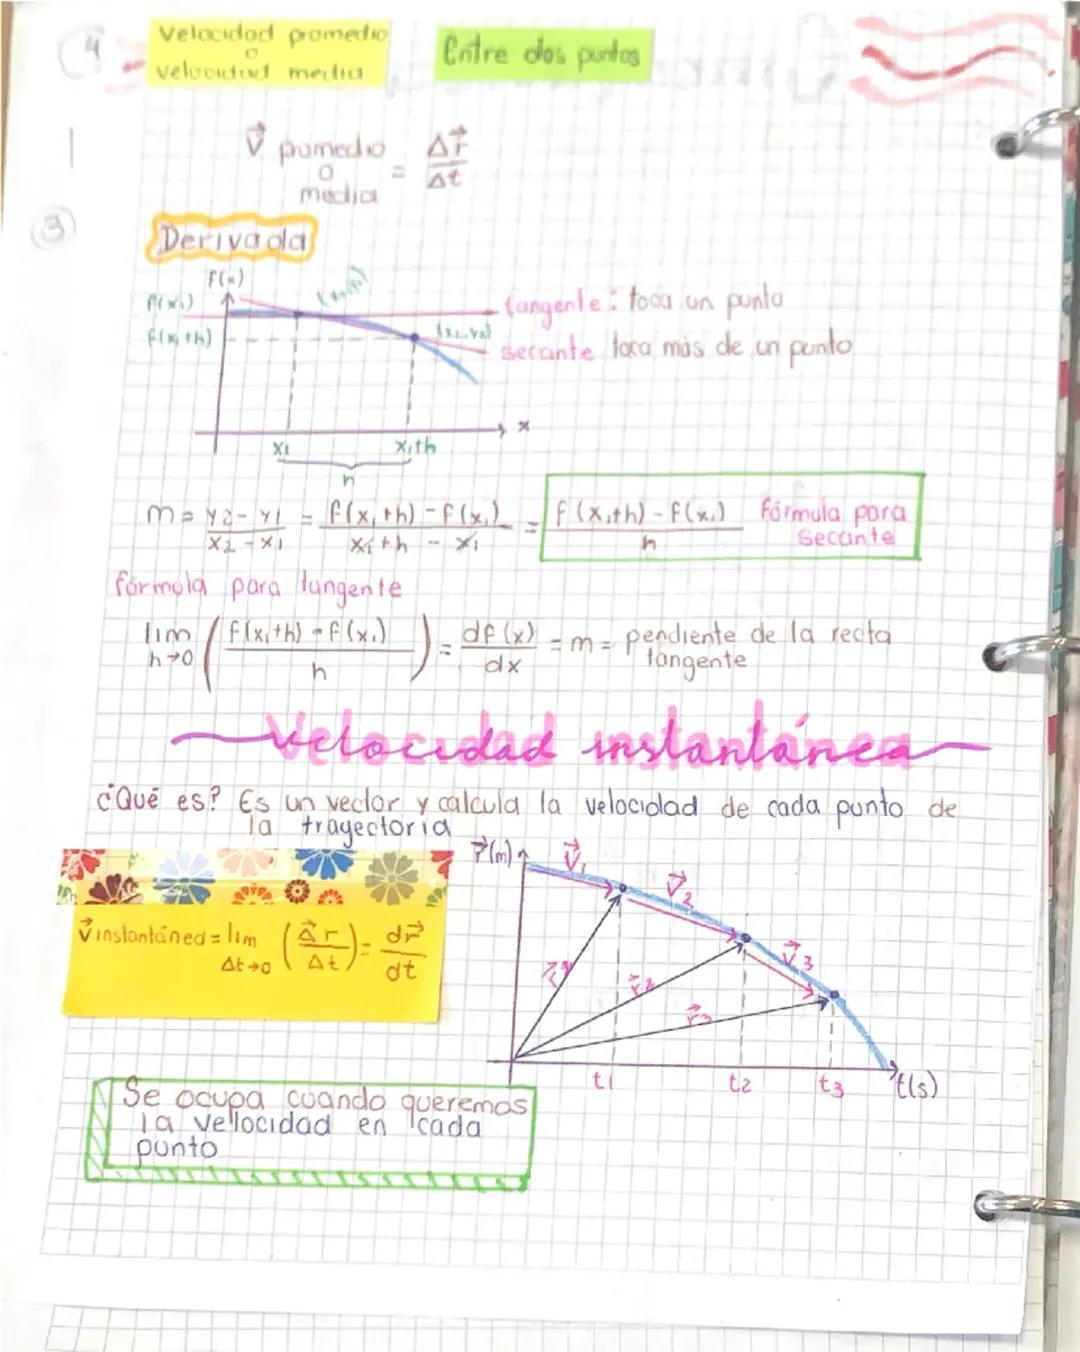 4
Velocidad promedio
o
velocidad media
Entre dos puntos
V⃗ promedio o media = Δr⃗/Δt
3
Derivada
F(x)
f(x₁)
f(x₁+h)
(x₂,y₂)
tangente: toca un punto
secante toca más de un punto
x
x₁
x₁+h
h
m = y2-y1/x2-x1 = f(x₁+h)-f(x₁)/x₁+h - x₁ = f(x₁+h)-f(x₁)/h fórmula para secante
fórmula para tangente
lim h→0 (f(x₁+h)-f(x₁)/h) = df(x)/dx = m = pendiente de la recta tangente
Velocidad instantánea
¿Qué es? Es un vector y calcula la velocidad de cada punto de
la trayectoria
r⃗(m)
V⃗₁
V⃗₂
V⃗3
V⃗ instantánea = lim Δt→0 (Δ⃗r/Δt) = dr⃗/dt
r⃗1
r⃗2
r⃗3
t1
t2
t3
t(s)
Se ocupa cuando queremos
la vellocidad en cada
punto